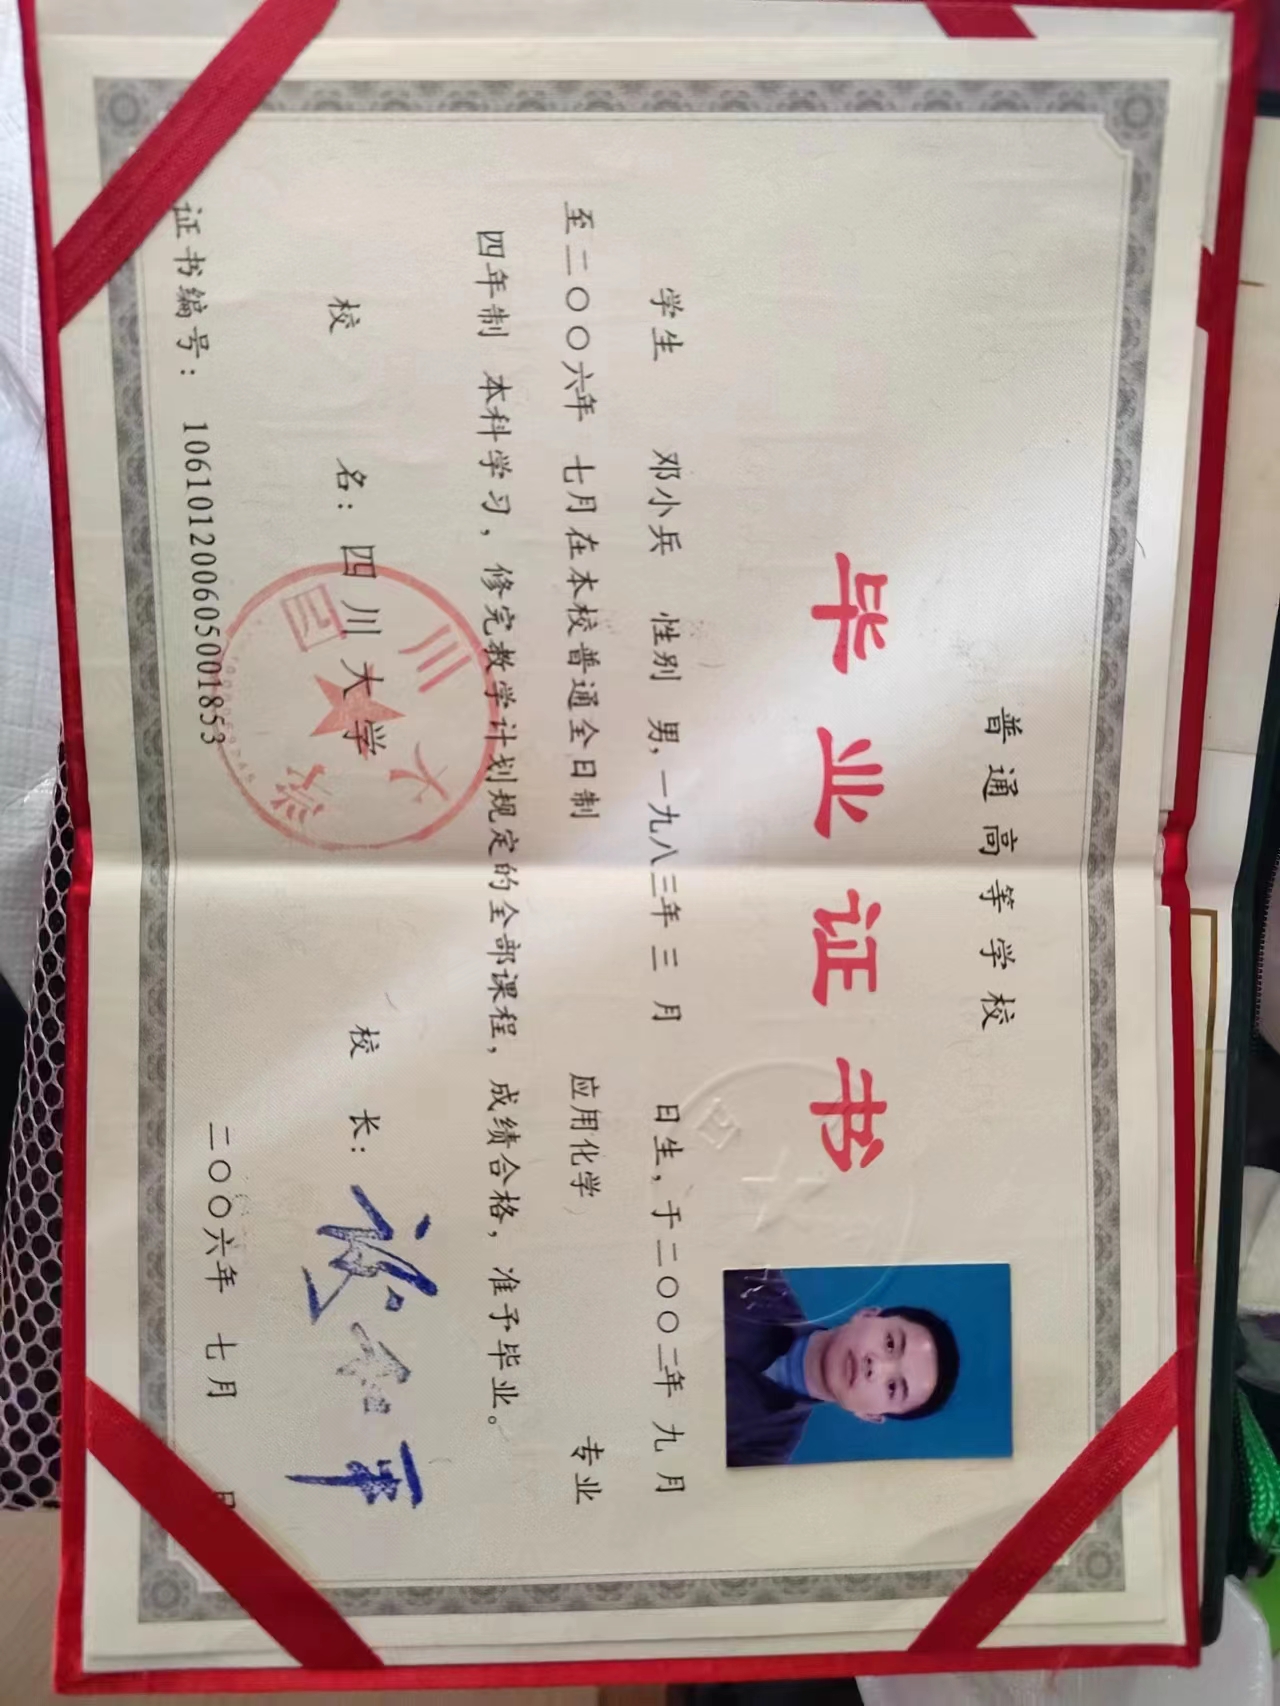 普通高等学校
毕业证书
学生 邓小兵 性别 男，一九八三年 三 月 日生，于二〇〇二年 九 月
至二〇〇六年 七月在本校普通全日制 应用化学 专业
四年制 本科学习，修完教学计划规定的全部课程，成绩合格，准予毕业。
校 名：四川大学 校 长：
证书编号： 106101200605001853 二〇〇六年 七月 日